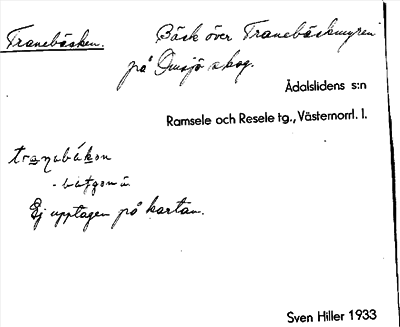 Tranebäcken.
Bäck över Tranebäckmyren
på Omsjö skog.
Ådalslidens s:n
Ramsele och Resele tg., Västernorrl. l.
Ej upptagen på kartan.
Sven Hiller 1933